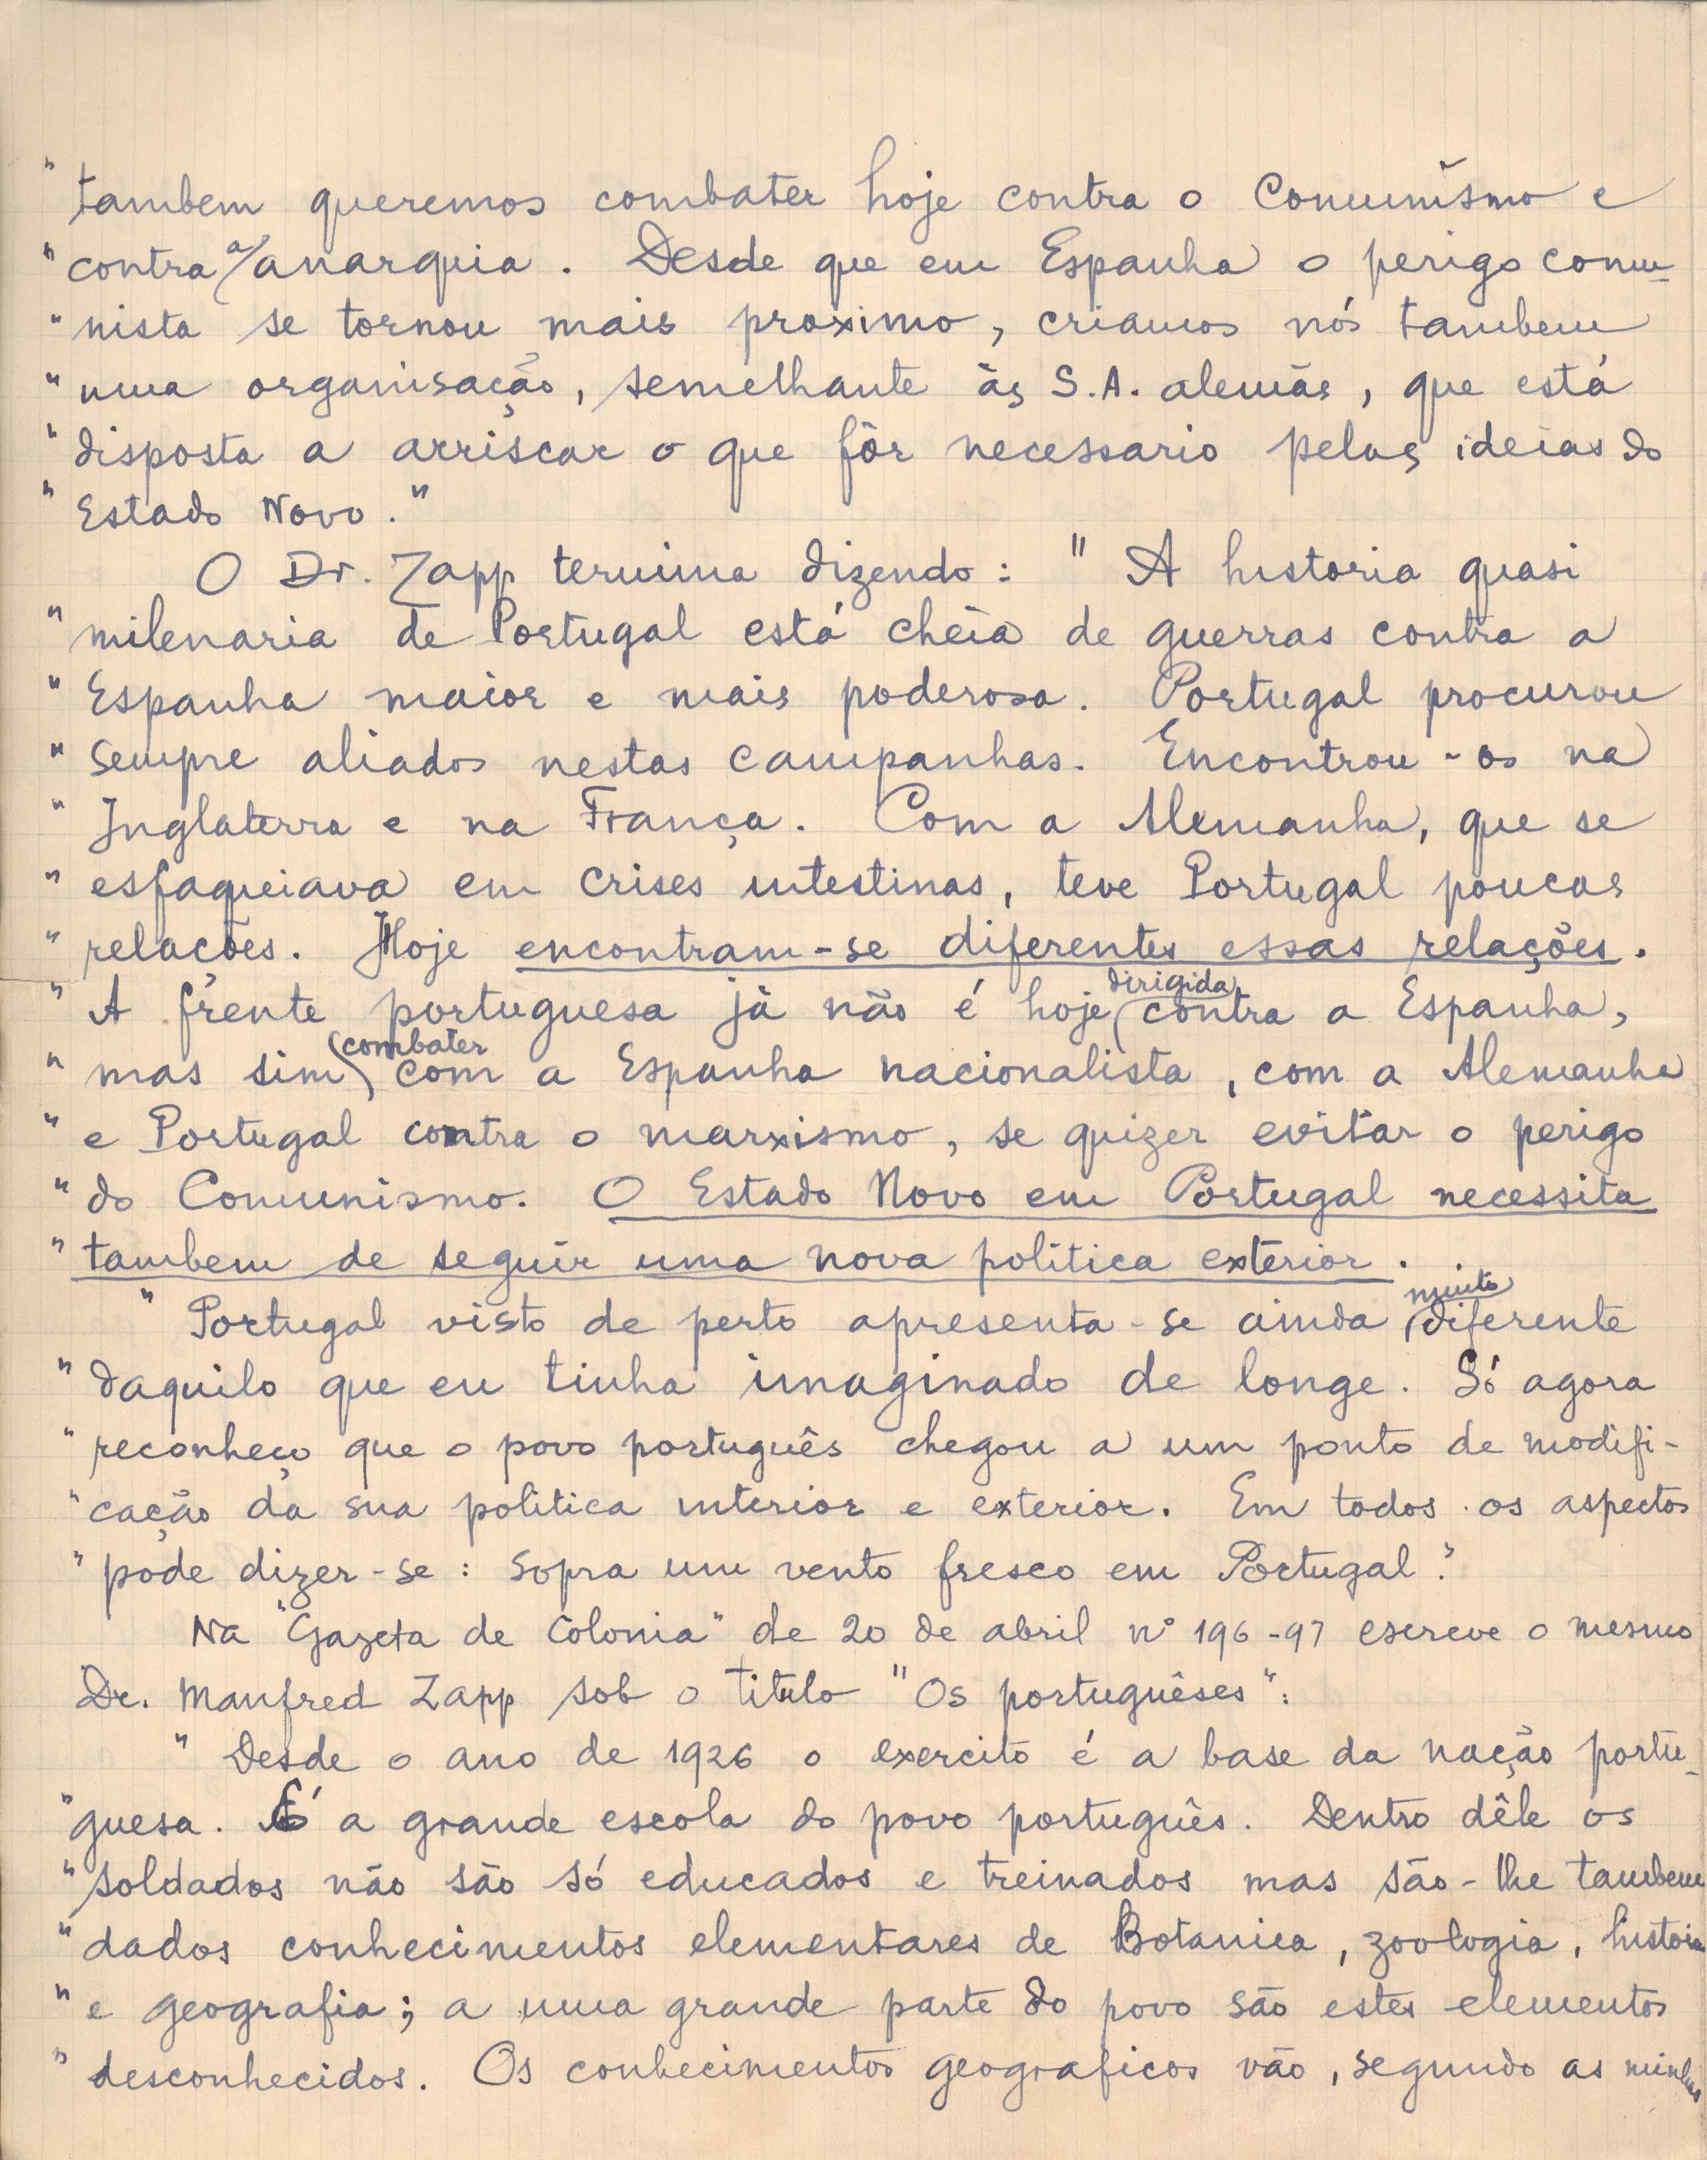 " tambem queremos combater hoje contra o Comunismo e
" contra a anarquia. Desde que em Espanha o perigo comu-
" nista se tornou mais proximo, criamos nós tambem
" uma organisação, semelhante às S.A. alemãs, que está
" disposta a arriscar o que fôr necessario pelas ideias do
" Estado Novo."
O Dr. Zapp termina dizendo: " A historia quasi
" milenaria de Portugal está cheia de guerras contra a
" Espanha maior e mais poderosa. Portugal procurou
" sempre aliados nestas campanhas. Encontrou-os na
" Inglaterra e na França. Com a Alemanha, que se
" esfaqueiava em crises intestinas, teve Portugal poucas
" relações. Hoje encontram-se diferentes essas relações.
" A frente portuguesa já não é hoje dirigida contra a Espanha,
" mas sim combater com a Espanha nacionalista, com a Alemanha
" e Portugal contra o marxismo, se quizer evitar o perigo
" do Comunismo. O Estado Novo em Portugal necessita
" tambem de seguir uma nova politica exterior.
" Portugal visto de perto apresenta-se ainda muito diferente
" daquilo que eu tinha imaginado de longe. Só agora
" reconheço que o povo português chegou a um ponto de modifi-
" cação da sua politica interior e exterior. Em todos os aspectos
" pode dizer-se: sopra um vento fresco em Portugal."
Na "Gazeta de Colonia" de 20 de abril nº 196-97 escreve o mesmo
Dr. Manfred Zapp sob o titulo "Os portuguêses":
" Desde o ano de 1926 o exercito é a base da nação portu-
" guesa. É a grande escola do povo português. Dentro dêle os
" soldados não são só educados e treinados mas são-lhe tambem
" dados conhecimentos elementares de Botanica, zoologia, historia
" e geografia; a uma grande parte do povo são estes elementos
" desconhecidos. Os conhecimentos geograficos vão, segundo as minhas